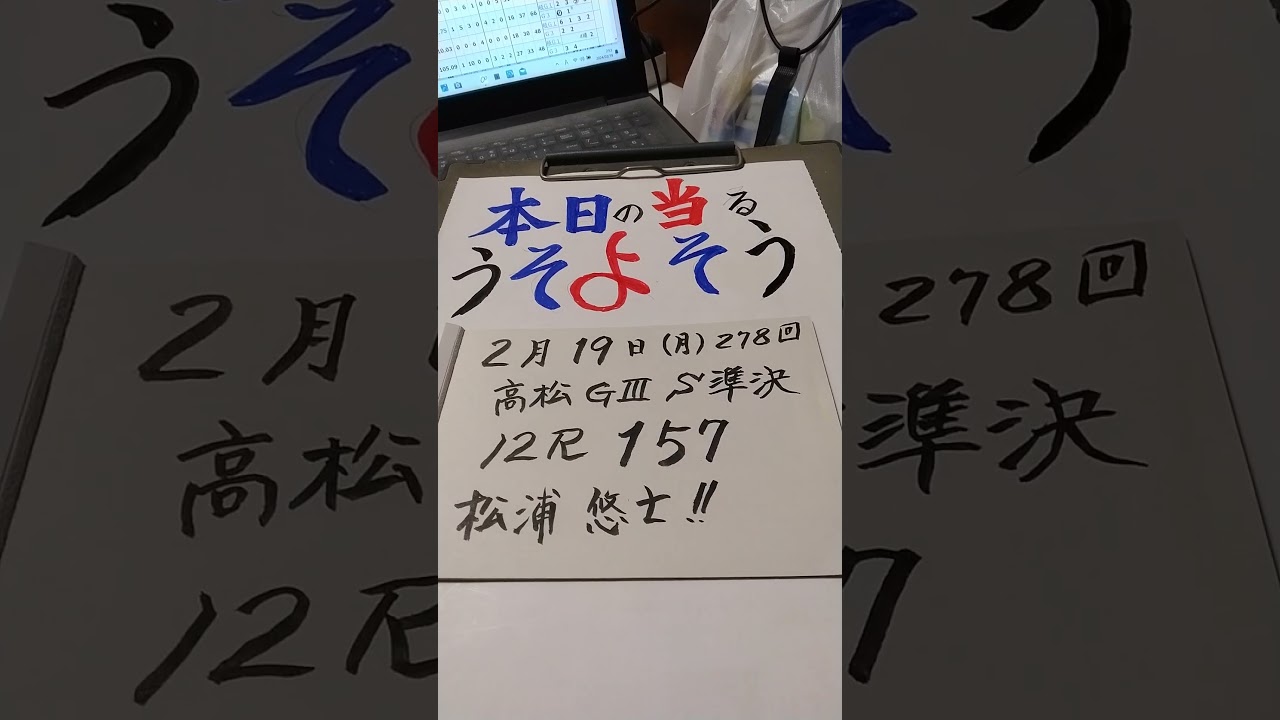 本日の当る
うそよそう
2月19日(月)278回
高松GⅢ S準決
12R 157
松浦 悠士!!